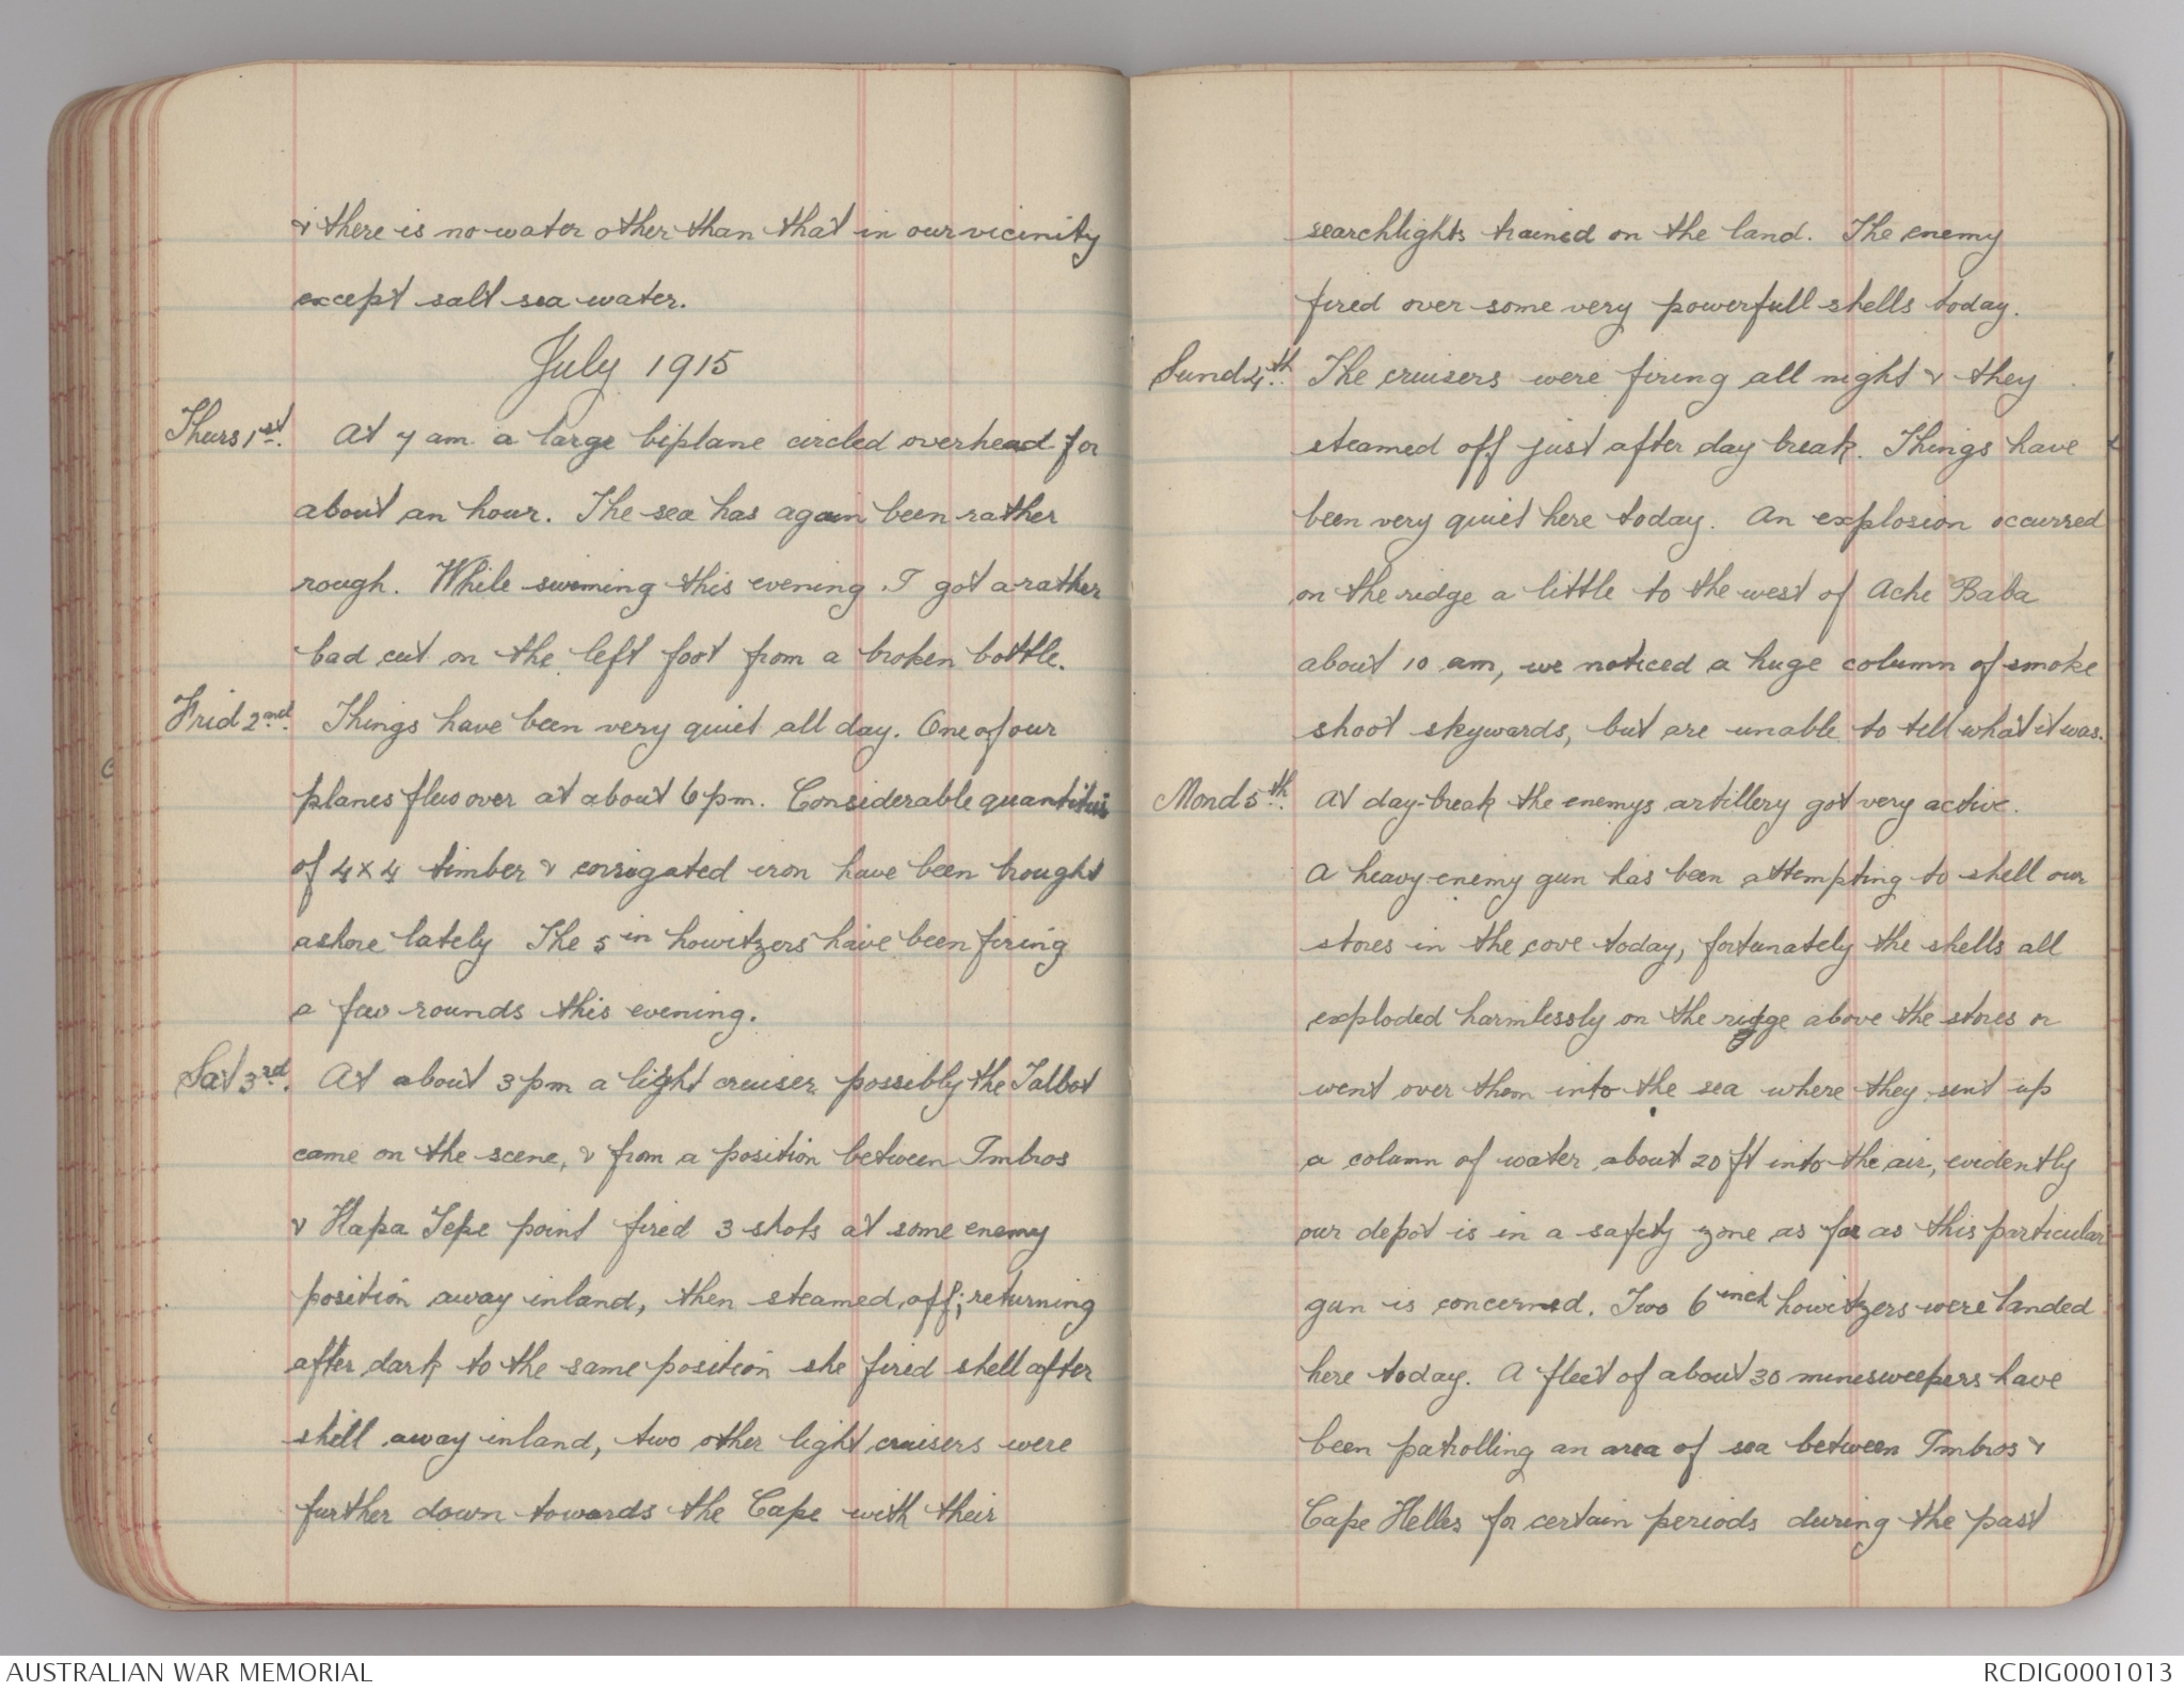 & there is no water other than that in our vicinity
except salt sea water.
July 1915
Thurs 1st. At 7 am a large biplane circled overhead for
about an hour. The sea has again been rather
rough. While swiming this evening I got a rather
bad cut on the left foot from a broken bottle.
Frid 2nd. Things have been very quiet all day. One of our
planes flew over at about 6 pm. Considerable quantities
of 4x4 timber & corrugated iron have been brought
ashore lately The 5 in howitzers have been firing
a few rounds this evening.
Sat 3rd. At about 3 pm a light cruiser possibly the Talbot
came on the scene, & from a position between Imbros
& Kapa Tepe point fired 3 shots at some enemy
position away inland, then steamed off; returning
after dark to the same position she fired shell after
shell away inland, two other light cruisers were
further down towards the Cape with their
searchlights trained on the land. The enemy
fired over some very powerfull shells today.
Sund 4th. The cruisers were firing all night & they
steamed off just after day break. Things have
been very quiet here today. An explosion occurred
on the ridge a little to the west of Ache Baba
about 10 am, we noticed a huge column of smoke
shoot skywards, but are unable to tell what it was.
Mond 5th. At day-break the enemys artillery got very active.
A heavy enemy gun has been attempting to shell our
stores in the cove today, fortunately the shells all
exploded harmlessly on the ridge above the stores or
went over them into the sea where they sent up
a column of water about 20 ft into the air, evidently
our depot is in a safety zone as far as this particular
gun is concerned. Two 6 inch howitzers were landed
here today. A fleet of about 30 minesweepers have
been patrolling an area of sea between Imbros &
Cape Helles for certain periods during the past
AUSTRALIAN WAR MEMORIAL
RCDIG0001013